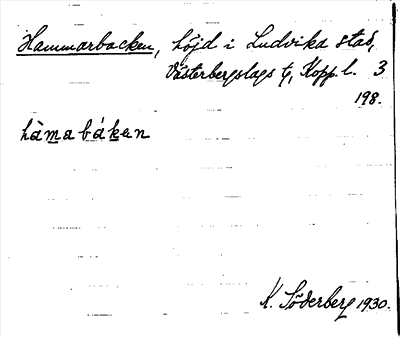 Hammarbacken, höjd i Ludvika stad,
Västerbergslags tg, Kopp. l. 3
198.
hàmabáken
K. Söderberg 1930.